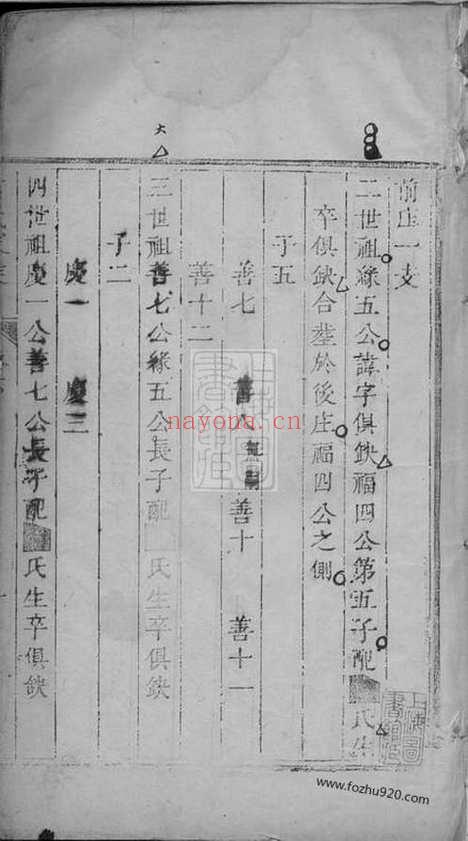 前庄一支
二世祖緣五公諱字俱缺福四公第五子配氏生
卒俱缺合塟於後庄福四公之側
子五
善七 善八 善十 善十一
善十二
三世祖善七公緣五公長子配 氏生卒俱缺
子二
慶一 慶三
四世祖慶一公善七公長子配 氏生卒俱缺
nayona.cn
www.fozhu920.com